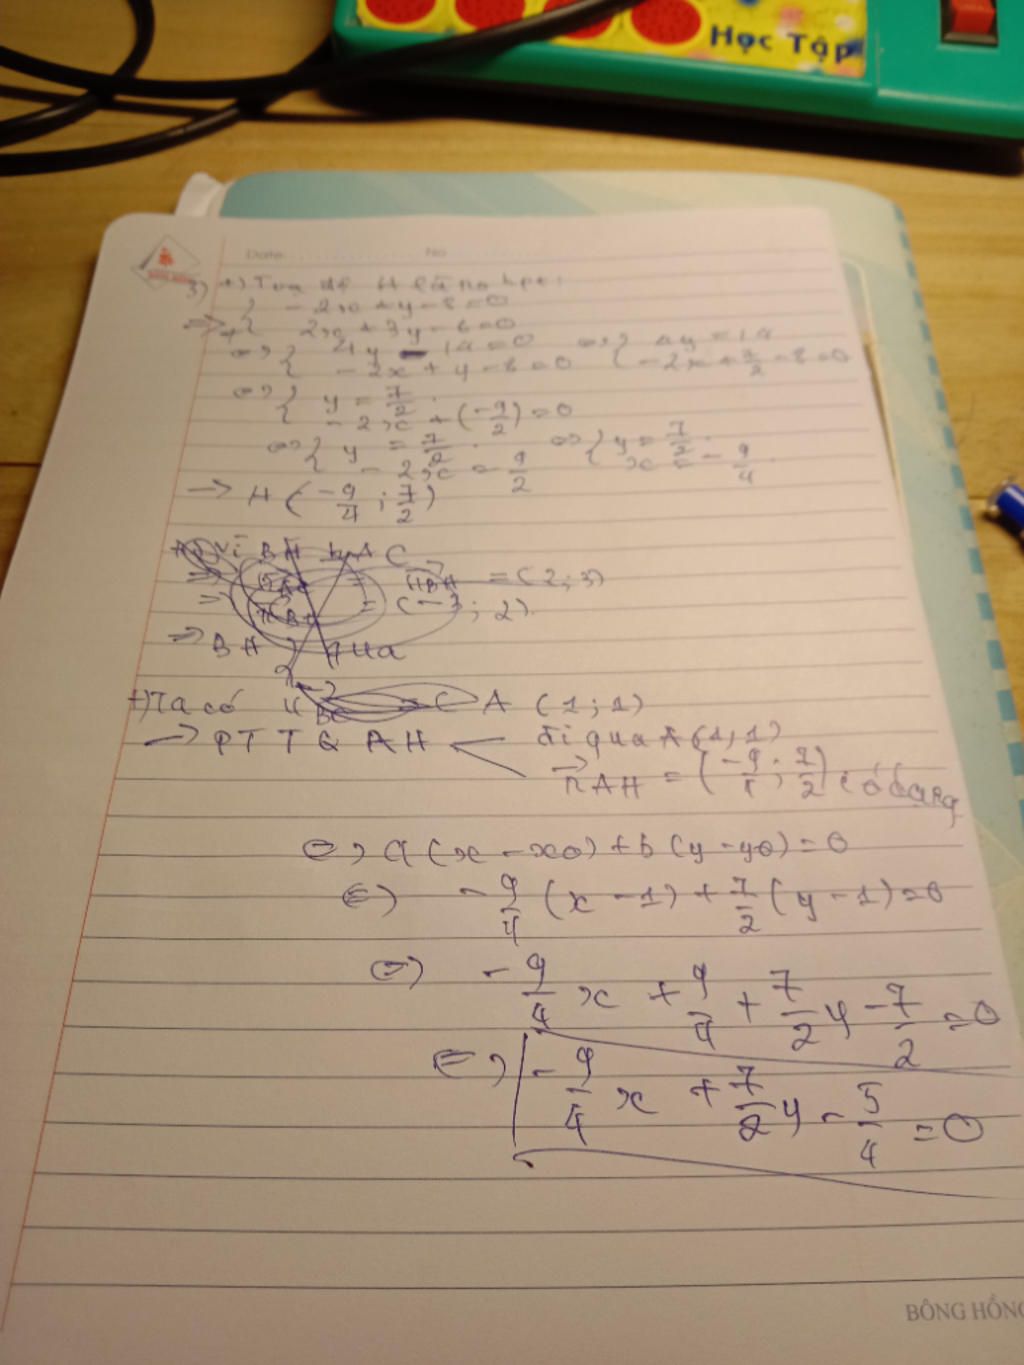 Học Tập
Date No
3) +) Toạ độ H là no hpt:
=> { - 2x + y - 8 = 0
2x + 3y - 6 = 0
<=> { 4y - 14 = 0 <=> { 4y = 14
- 2x + y - 8 = 0 - 2x + 7/2 - 8 = 0
<=> { y = 7/2
- 2x + (-9/2) = 0
<=> { y = 7/2 <=> { y = 7/2
- 2x = 9/2 x = - 9/4
-> H (-9/4 ; 7/2)
Vì BH ⊥ AC
=> = n BH = (2; 3)
=> = (-3; 2)
=> BH qua
+) Ta có A (1; 1)
-> PTTQ AH đi qua A (1; 1)
n AH = (-9/4 ; 7/2) có dạng
<=> a (x - x0) + b (y - y0) = 0
<=> - 9/4 (x - 1) + 7/2 (y - 1) = 0
<=> - 9/4 x + 9/4 + 7/2 y - 7/2 = 0
<=> - 9/4 x + 7/2 y - 5/4 = 0
BÔNG HỒNG